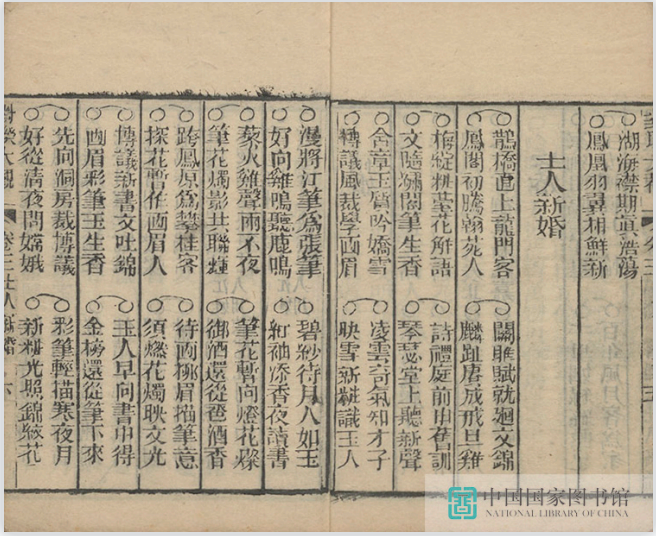 湖海襟期真浩蕩
鳳凰羽翼相鮮新
士人新婚
鵲橋直上龍門客 關雎賦就廻文錦
鳳閣初騰翰苑人 麟趾賡成戒旦雞
梅綻粧芸花解語 詩禮庭前申舊訓
文隨繡閣筆生香 琴瑟堂上聽新聲
含章玉質吟嬌雪 凌雲奇氣知才子
博議風裁學画眉 映雪新粧識玉人
漫將江筆爲張筆 碧紗待月人如玉
好向雞鳴聽鹿鳴 紅袖添香夜讀書
藜火雞聲兩不夜 筆花暫向燈花燦
筆花燭影共聯輝 御酒還從巹酒香
跨鳳原爲攀桂客 待画桃眉描筆意
探花暫作画眉人 須燃花燭映文光
博議新書文吐錦 玉人早向書中得
画眉彩筆玉生香 金榜還從筆下來
先向洞房裁博議 彩筆輕描寒夜月
好從清夜問嫦娥 新粧光照錦綾花
大觀 卷三士人新婚 六
中国国家图书馆
NATIONAL LIBRARY OF CHINA